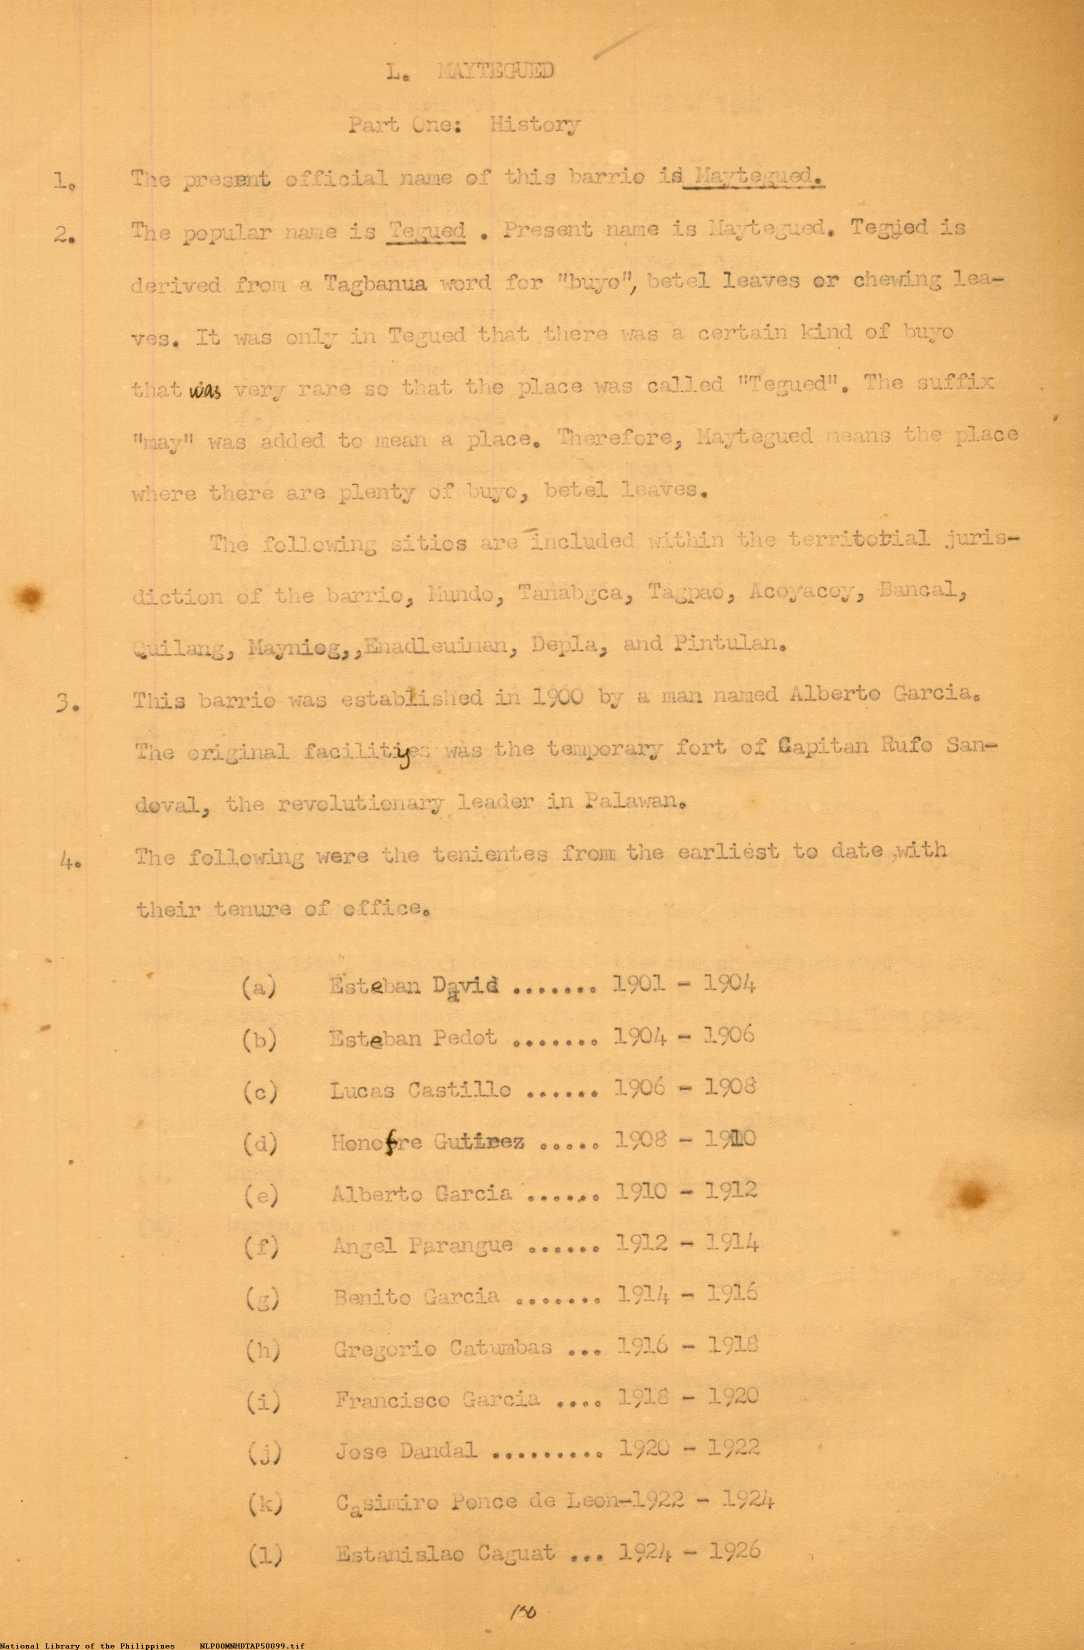 L. MAYTEGUED
Part One: History
1. The present official name of this barrio is Maytegued.
2. The popular name is Tegued . Present name is Maytegued. Tegued is
derived from a Tagbanua word for "buyo", betel leaves or chewing lea-
ves. It was only in Tegued that there was a certain kind of buyo
that was very rare so that the place was called "Tegued". The suffix
"may" was added to mean a place. Therefore, Maytegued means the place
where there are plenty of buyo, betel leaves.
The following sitios are included within the territorial juris-
diction of the barrio, Mundo, Tanabgca, Tagpao, Acoyacoy, Bancal,
Quilang, Mayniog,,Enadleuiman, Depla, and Pintulan.
3. This barrio was established in 1900 by a man named Alberto Garcia.
The original facilities was the temporary fort of Capitan Rufo San-
doval, the revolutionary leader in Palawan.
4. The following were the tenientes from the earliest to date with
their tenure of office.
(a) Esteban David ....... 1901 - 1904
(b) Esteban Pedot ....... 1904 - 1906
(c) Lucas Castillo ...... 1906 - 1908
(d) Honofre Gutirez ..... 1908 - 1910
(e) Alberto Garcia ...... 1910 - 1912
(f) Angel Parangue ...... 1912 - 1914
(g) Benito Garcia ....... 1914 - 1916
(h) Gregorio Catumbas ... 1916 - 1918
(i) Francisco Garcia .... 1918 - 1920
(j) Jose Dandal ......... 1920 - 1922
(k) Casimiro Ponce de Leon-1922 - 1924
(l) Estanislao Caguat ... 1924 - 1926
National Library of the Philippines NLPOOMNHDTAP50099.tif